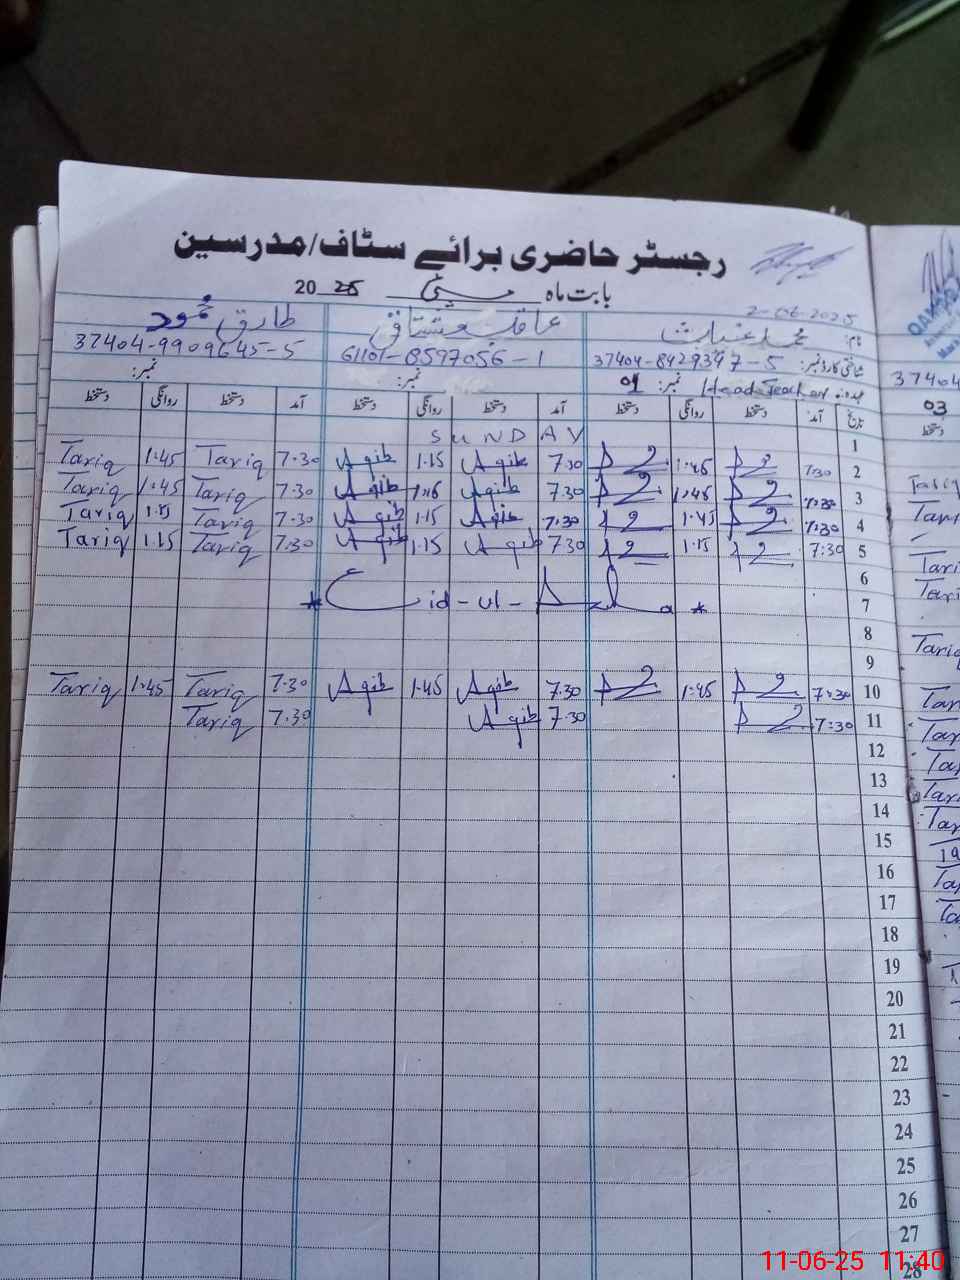 رجسٹر حاضری برائے سٹاف/مدرسین
بابت ماہ 2025
2-06-2025
نام: محمد غیاث عاقب مشتاق طارق محمود
شناختی کارڈ نمبر: 37404-8429347-5 61101-8597056-1 37404-9909645-5
عہدہ Head Teacher نمبر: 01 نمبر: نمبر:
تاریخ آمد دستخط روانگی دستخط آمد دستخط روانگی دستخط آمد دستخط روانگی دستخط
1 SUNDAY
2 7:30 1:45 7.30 Aqib 1.15 Aqib 7.30 Tariq 1.45 Tariq
3 7:30 1:45 7.30 Aqib Aqib 7.30 Tariq 1.45 Tariq
4 7:30 1:45 7:30 Aqib 1.15 Aqib 7.30 Tariq Tariq
5 7:30 1:15 7.30 Aqib 1.15 Aqib 7.30 Tariq 1.15 Tariq
6
7 * Eid-ul-Adha *
8
9
10 7:30 1:45 7.30 Aqib 1.45 Aqib 7.30 Tariq 1.45 Tariq
11 7:30 7.30 Aqib 7.30 Tariq
12
13
14
15
16
17
18
19
20
21
22
23
24
25
26
27
28
37404
03
دستخط
Tariq
11-06-25 11:40